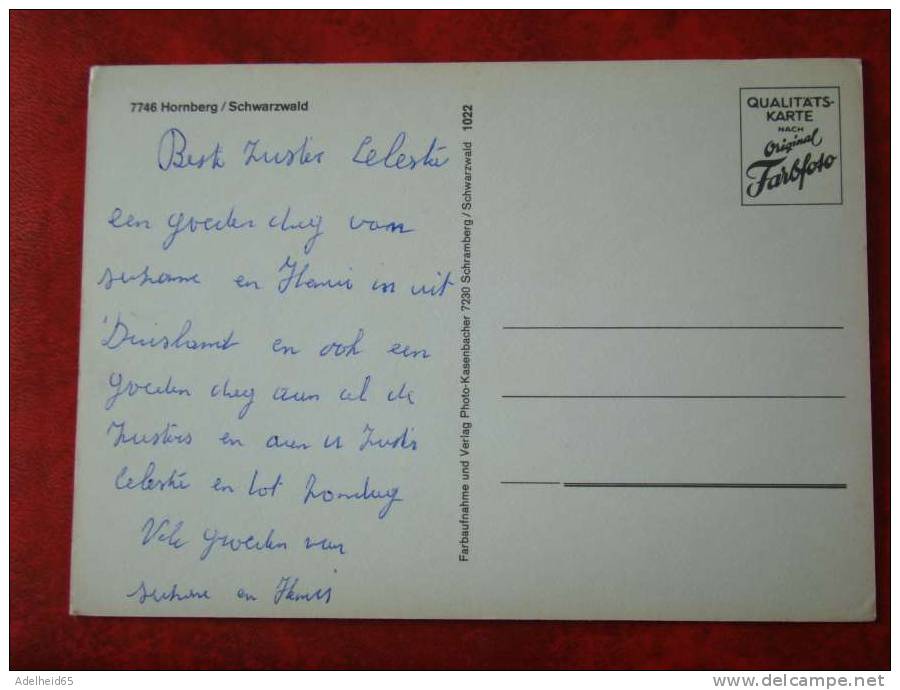 7746 Hornberg / Schwarzwald
Beste Zuster Celeste
een goeden dag van
en uit
Duisland en ook een
goeden dag aan al de
Zusters en aan u Zuster
Celeste en tot Zondag
Vele groeten van
en
Farbaufnahme und Verlag Photo-Kasenbacher 7230 Schramberg / Schwarzwald 1022
QUALITÄTS-
KARTE
NACH
Original
Farbfoto
Adelheid65
www.delcampe.net